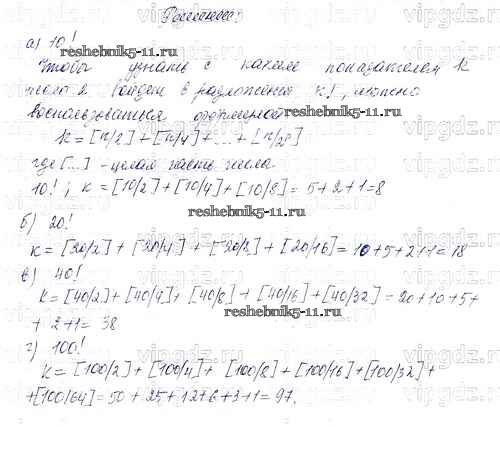 Решение:
а) 10!
reshebnik5-11.ru
Чтобы узнать с каким показателем k
число 2 войдет в разложение к!, можно
воспользоваться формулой
reshebnik5-11.ru
k = [n/2] + [n/4] + ... + [n/2ᵖ]
где [...] - целая часть числа
10! ; k = [10/2] + [10/4] + [10/8] = 5+2+1=8
reshebnik5-11.ru
б) 20!
k = [20/2] + [20/4] + [20/8] + [20/16] = 10+5+2+1=18
в) 40!
k = [40/2] + [40/4] + [40/8] + [40/16] + [40/32] = 20+10+5+
+ 2+1= 38
reshebnik5-11.ru
г) 100!
k = [100/2] + [100/4] + [100/8] + [100/16] + [100/32] +
+[100/64] = 50 + 25 + 12+6+3+1=97.